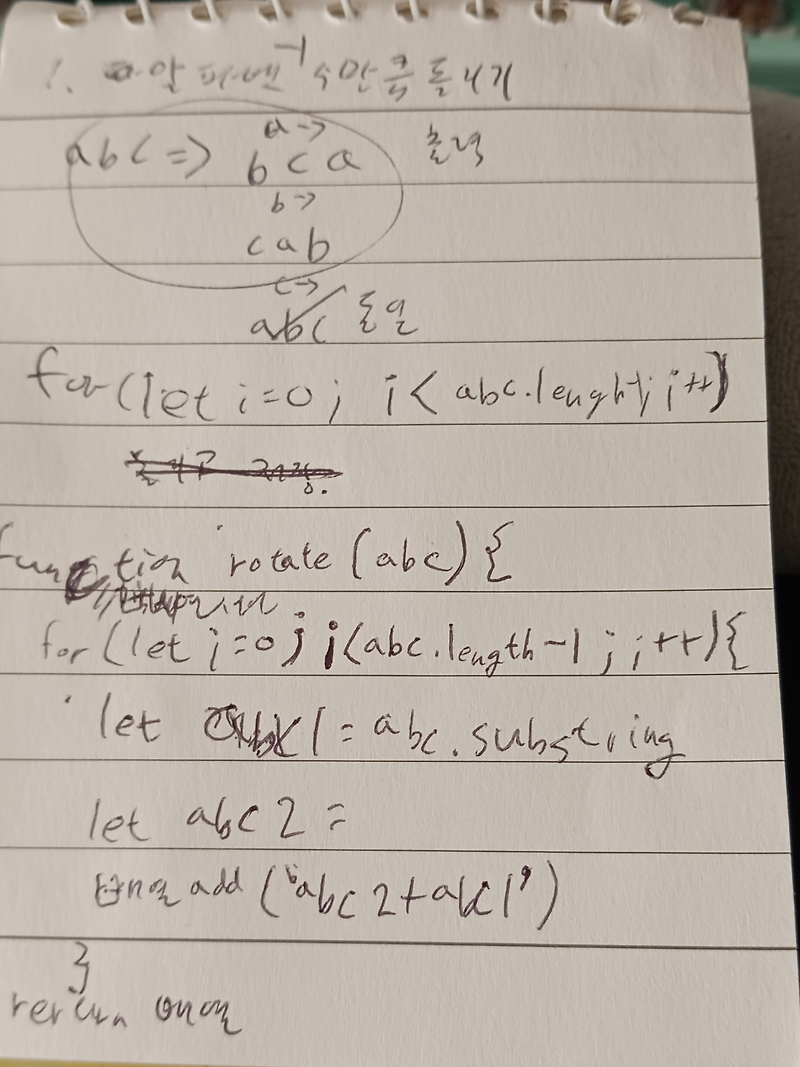 1. 알파벳 수만큼 돌리기
-1
a ->
abc => bca 출력
b ->
cab
c ->
abc 동일
for(let i=0; i< abc.lenght; i++)
function rotate (abc) {
for (let i=0; i<abc.length-1; i++){
let abc1 = abc.substring
let abc2 =
배열 add ('abc2+abc1')
}
rercrn 배열